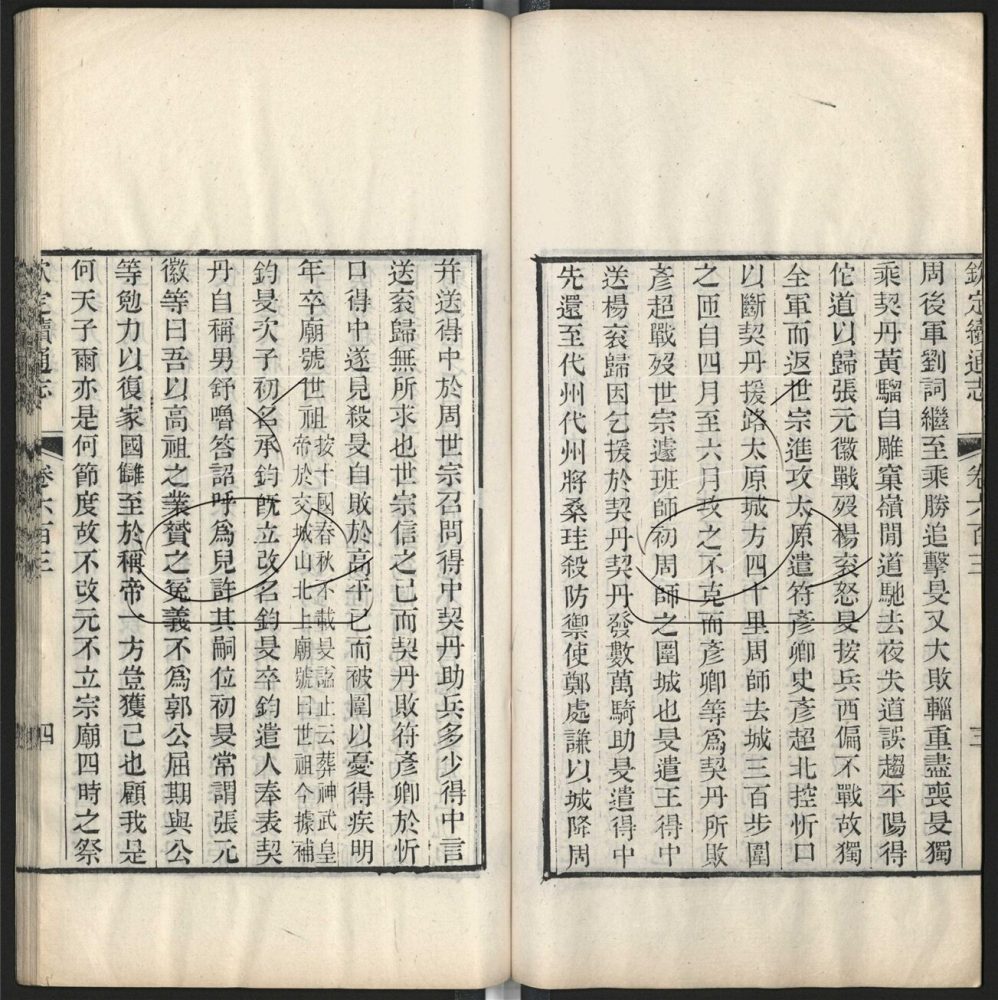 欽定續通志 卷六百三 三
周後軍劉詞繼至乘勝追擊旻又大敗輜重盡喪旻獨
乘契丹黃騮自雕窠嶺閒道馳去夜失道誤趨平陽得
佗道以歸張元徽戰歿楊衮怒旻按兵西偏不戰故獨
全軍而返世宗進攻太原遣符彥卿史彥超北控忻口
以斷契丹援路太原城方四十里周師去城三百步圍
之匝自四月至六月攻之不克而彥卿等爲契丹所敗
彥超戰歿世宗遽班師初周師之圍城也旻遣王得中
送楊衮歸因乞援於契丹契丹發數萬騎助旻遣得中
先還至代州代州將桑珪殺防禦使鄭處謙以城降周
并送得中於周世宗召問得中契丹助兵多少得中言
送衮歸無所求也世宗信之已而契丹敗符彥卿於忻
口得中遂見殺旻自敗於高平已而被圍以憂得疾明
年卒廟號世祖按十國春秋不載旻謚止云葬神武皇
帝於交城山北上廟號曰世祖今據補
鈞旻次子初名承鈞旣立改名鈞旻卒鈞遣人奉表契
丹自稱男舒嚕答詔呼爲兒許其嗣位初旻常謂張元
徽等曰吾以高祖之業贊之冤義不爲郭公屈期與公
等勉力以復家國讎至於稱帝一方豈獲已也顧我是
何天子爾亦是何節度故不改元不立宗廟四時之祭
欽定續通志 卷六百三 四